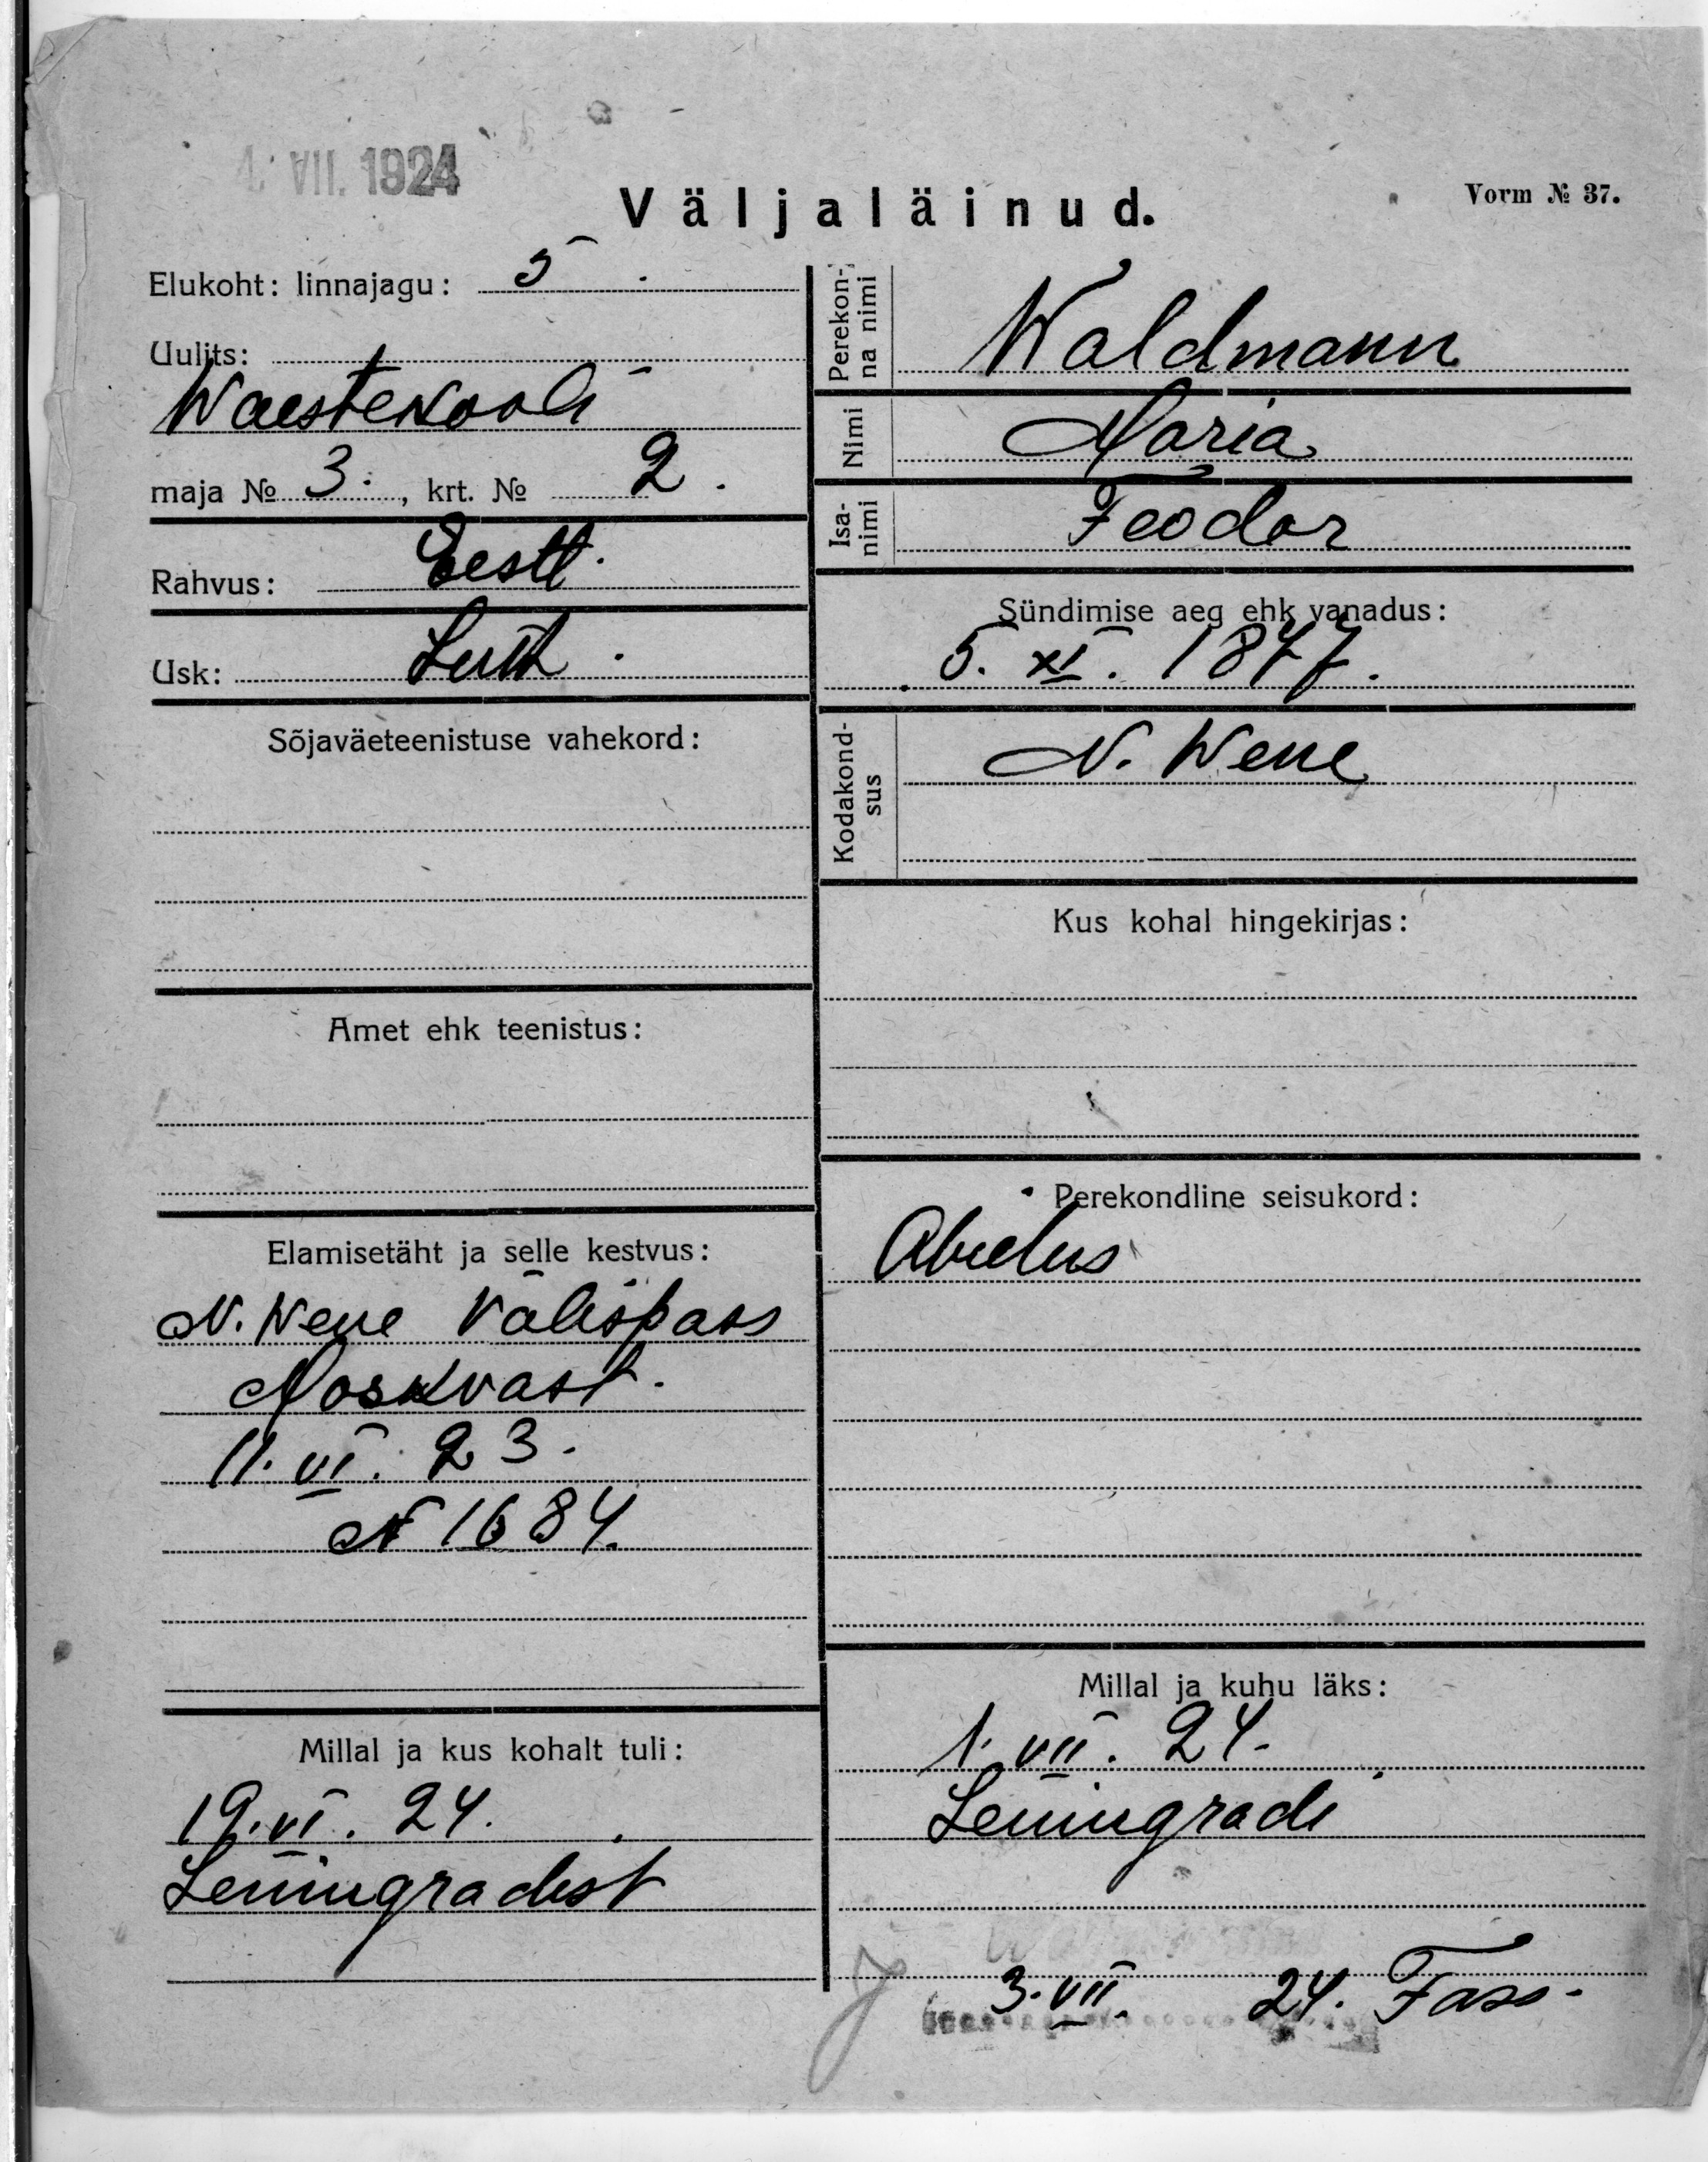 4. VII. 1924
Väljaläinud.
Vorm № 37.
Elukoht: linnajagu: 5.
Uulits:
Waestekooli
maja № 3., krt. № 2.
Rahvus: Eestl.
Usk: Luth.
Sõjaväeteenistuse vahekord:
Amet ehk teenistus:
Elamisetäht ja selle kestvus:
N. Wene Välispass
Moskvast.
11. VI. 23.
N 1684.
Millal ja kus kohalt tuli:
19. VI. 24.
Leningradist
Perekonna nimi Waldmann
Nimi Maria
Isanimi Feodor
Sündimise aeg ehk vanadus:
5. XI. 1877.
Kodakondsus N. Wene
Kus kohal hingekirjas:
Perekondline seisukord:
Abielus
Millal ja kuhu läks:
1. VII. 24.
Leningradi
3. VII. 24. Fass.